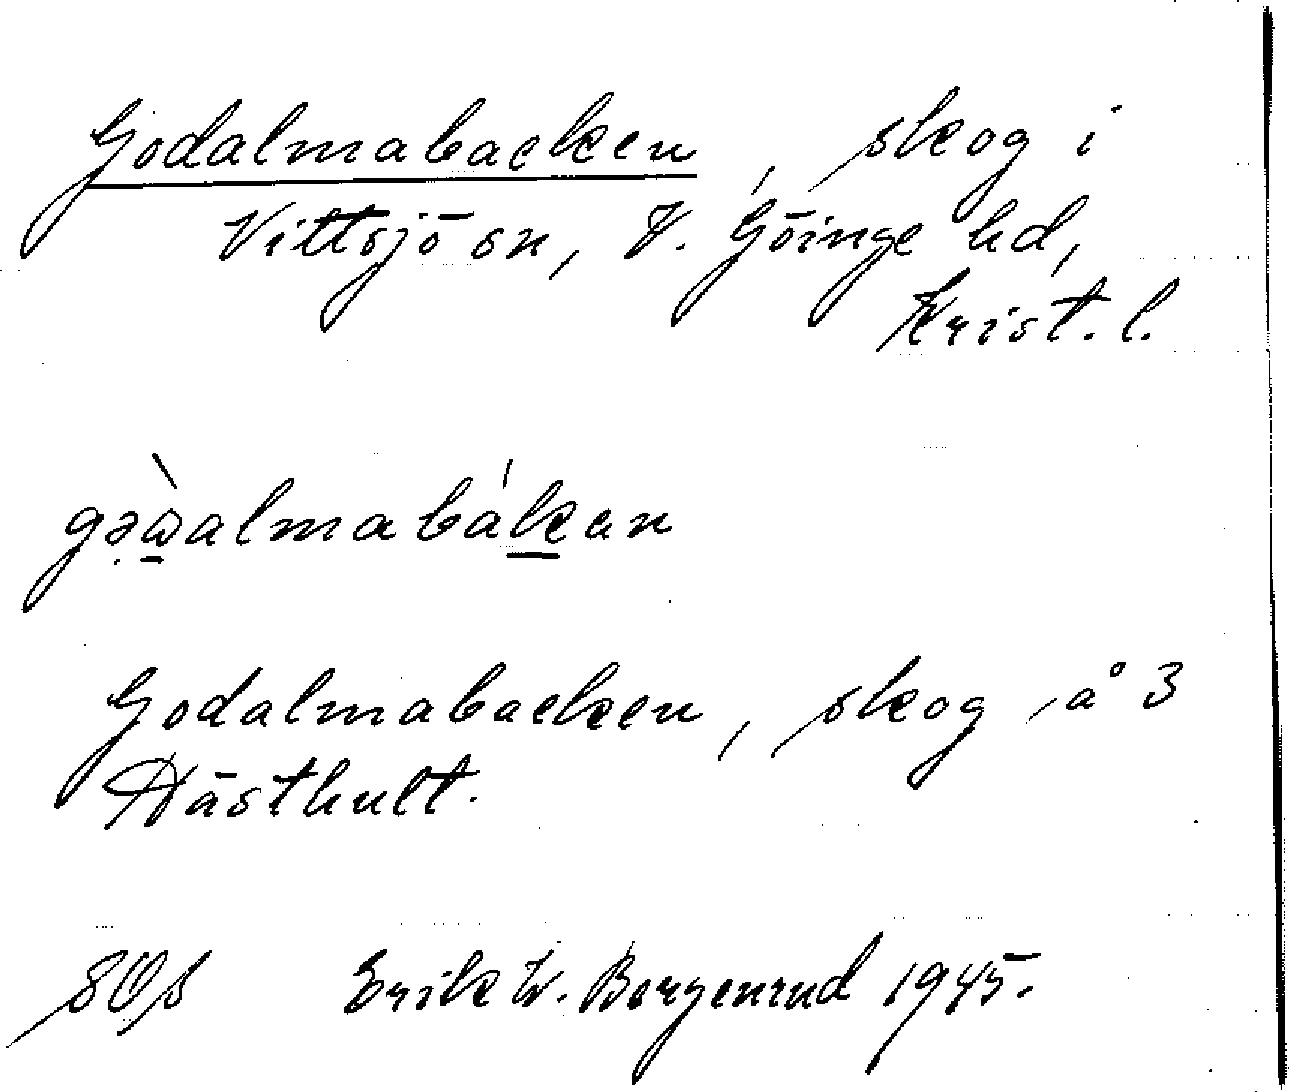 Godalmabacken, skog i
Vittsjö sn, V. Göinge hd,
Krist. l.
gə̣ɷ̱̀almabák̲an
Godalmabacken, skog å 3
Hästhult.
Erik W. Bergenrud 1945.